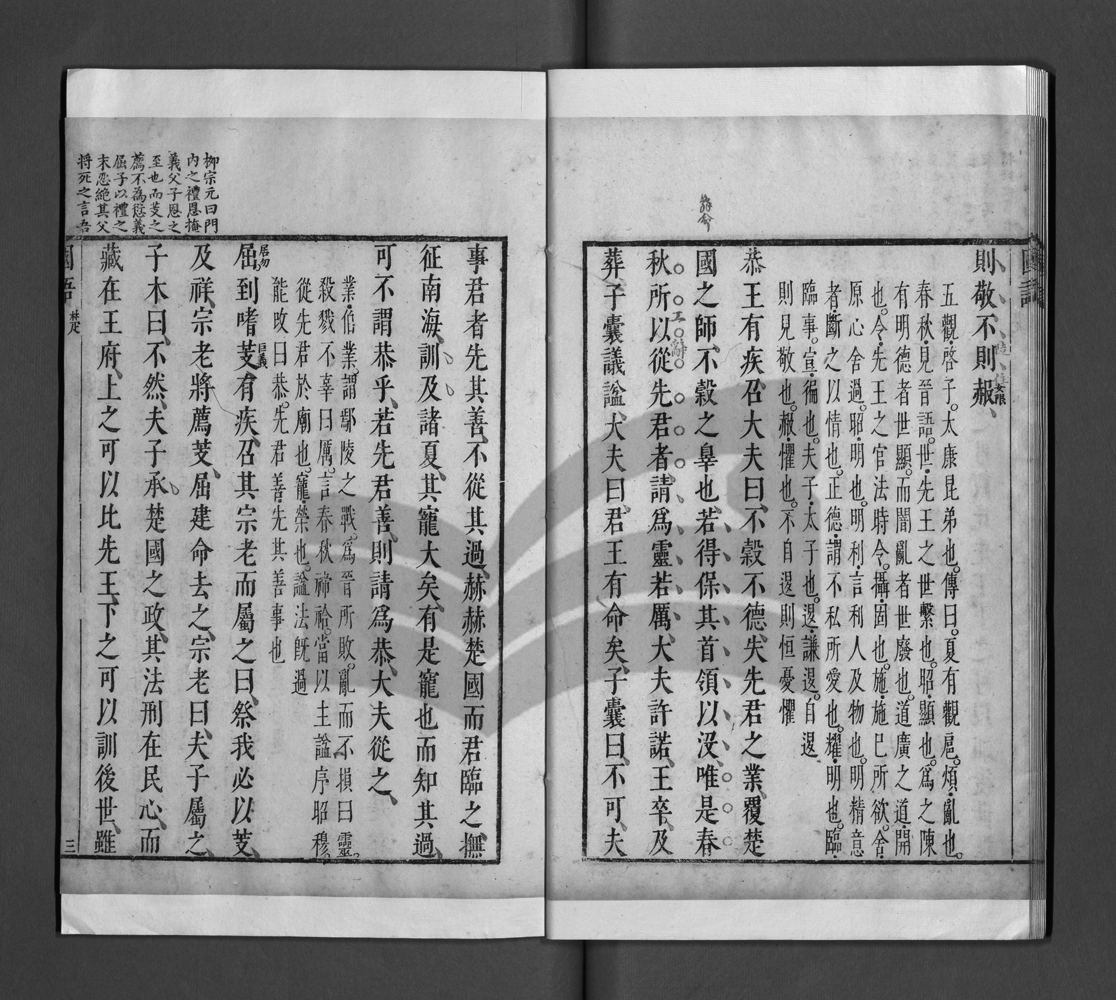 國語
則敬不則赧
五觀啓子太康昆弟也傳曰夏有觀扈煩亂也
春秋見晉語世先王之世繫也昭顯也爲之陳
有明德者世顯而闇亂者世廢也道廣之道開
也令先王之官法時令攝固也施施己所欲舍
原心舍過昭明也明利言利人及物也明精意
者斷之以情也正德謂不私所愛也耀明也臨
臨事宣徧也夫子太子也退謙退自退
則見敬也赧懼也不自退則恒憂懼
恭王有疾召大夫曰不穀不德失先君之業覆楚
國之師不穀之辠也若得保其首領以沒唯是春
秋所以從先君者請爲靈若厲大夫許諾王卒及
葬子囊議諡大夫曰君王有命矣子囊曰不可夫
事君者先其善不從其過赫赫楚國而君臨之撫
征南海訓及諸夏其寵大矣有是寵也而知其過
可不謂恭乎若先君善則請爲恭大夫從之
業伯業謂鄢陵之戰爲晉所敗亂而不損曰靈
殺戮不辜曰厲言春秋禘祫當以主諡序昭穆
從先君於廟也寵榮也諡法旣過
能改曰恭先君善先其善事也
屈到嗜芰有疾召其宗老而屬之曰祭我必以芰
及祥宗老將薦芰屈建命去之宗老曰夫子屬之
子木曰不然夫子承楚國之政其法刑在民心而
藏在王府上之可以比先王下之可以訓後世雖
柳宗元曰門
內之禮恩掩
義父子恩之
至也而芰之
薦不爲愆義
屈子以禮之
末忍絶其父
將死之言吾
國語
楚
三